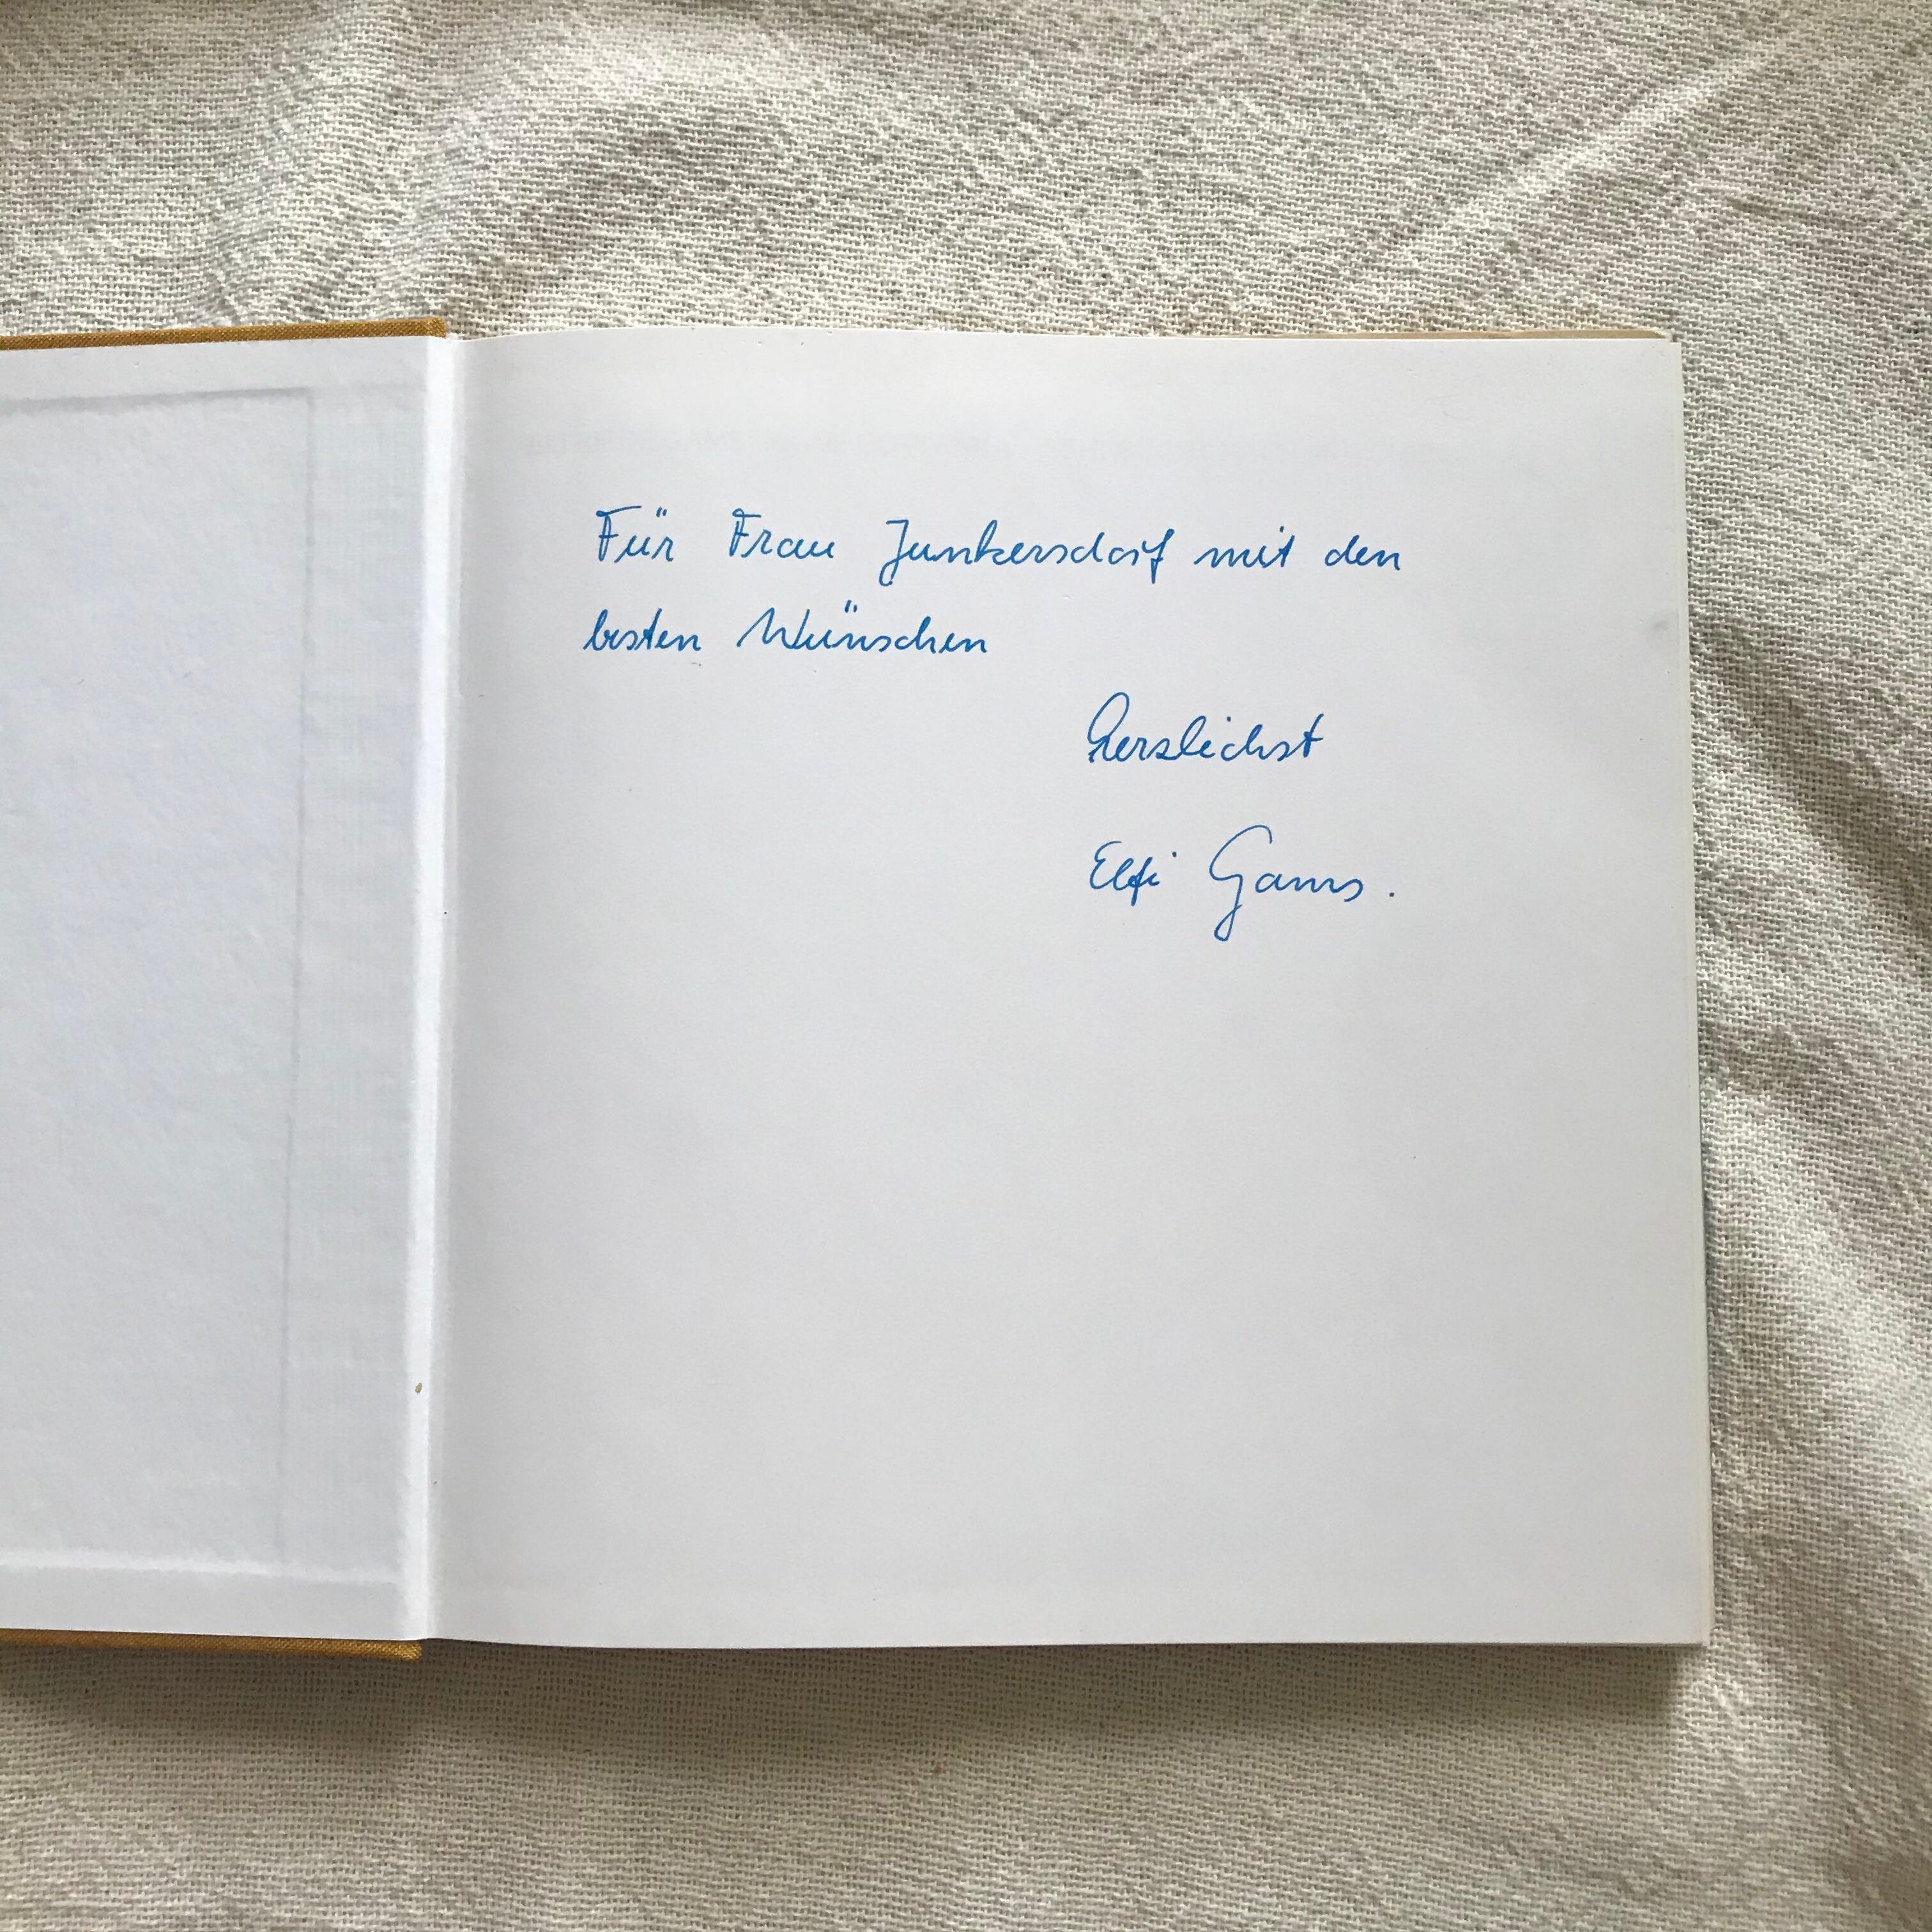 Für Frau Junkersdorf mit den
besten Wünschen
herzlichst
Elfi